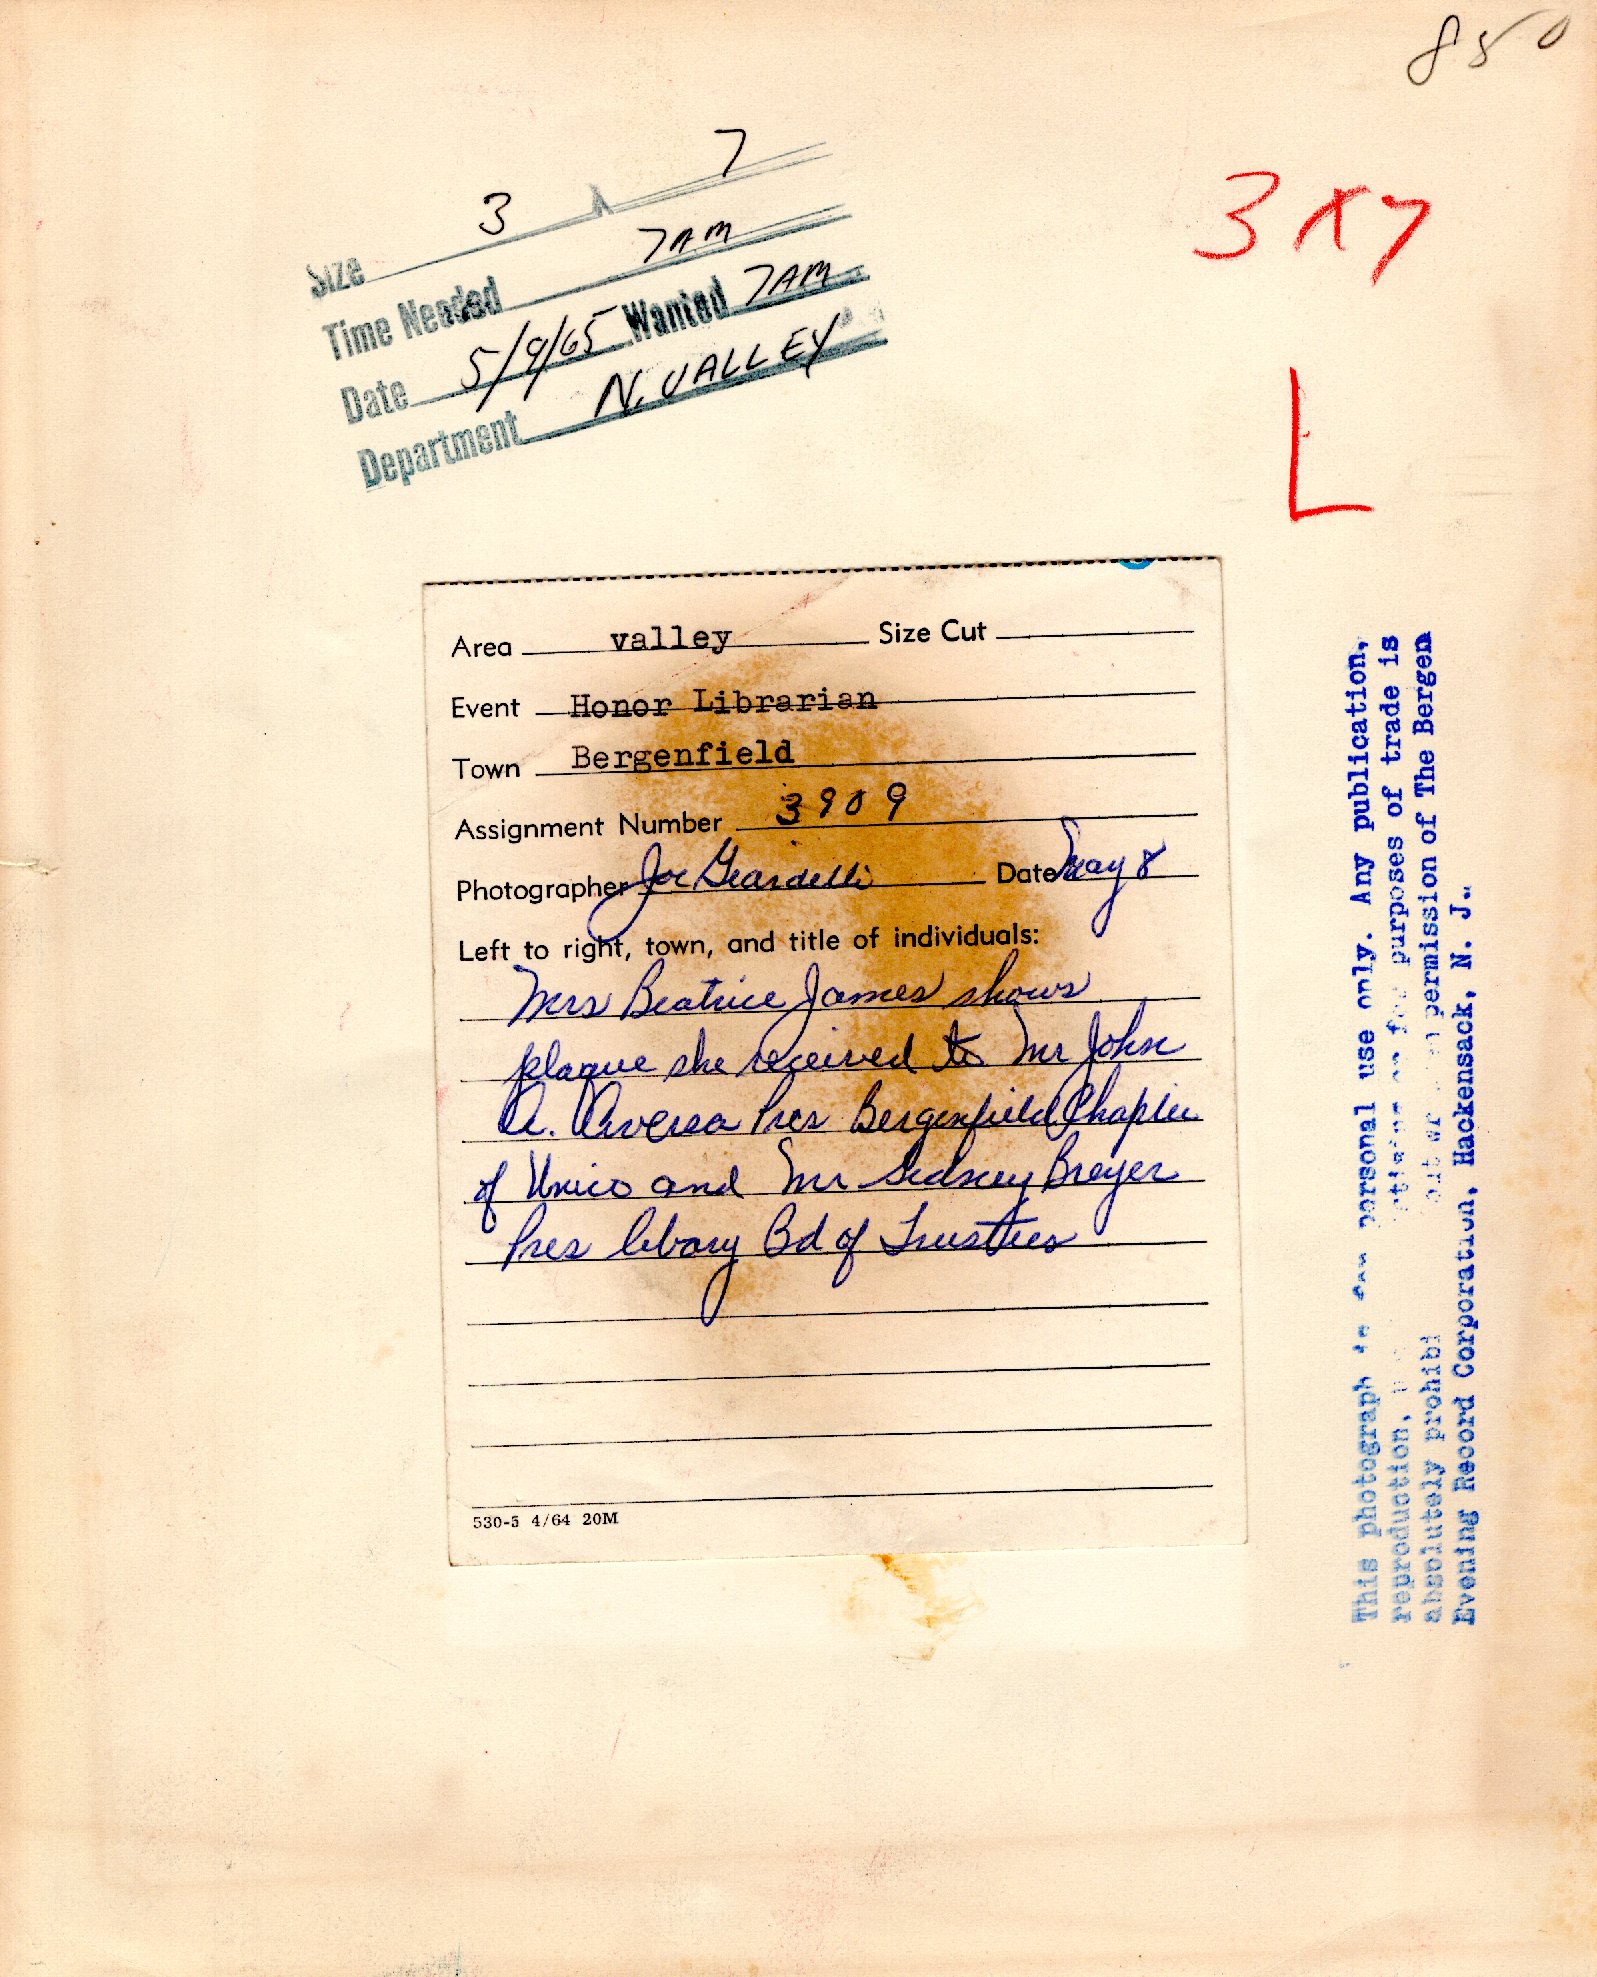 850
Size 3 x 7
Time Needed 7AM
Date 5/9/65 Wanted 7AM
Department N. VALLEY
3x7
L
Area valley Size Cut
Event Honor Librarian
Town Bergenfield
Assignment Number 3909
Photographer Joe Geardelli Date May 8
Left to right, town, and title of individuals:
Mrs Beatrice James shows
plaque she received to Mr John
A. Aversa Pres Bergenfield Chapter
of Unico and Mr Sidney Breyer
Pres libary Bd of Trustees
530-5 4/64 20M
This photograph is for personal use only. Any publication,
reproduction, for purposes of trade is
absolutely prohibi permission of The Bergen
Evening Record Corporation, Hackensack, N. J.